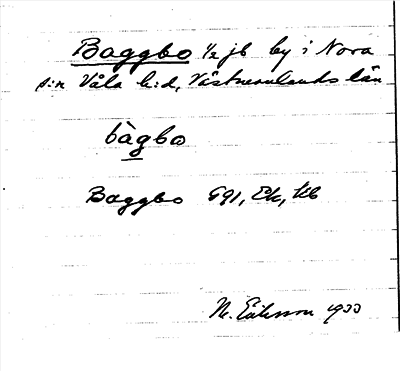 Baggbo 1/2 jb by i Nora
s:n Våla h:d, Västmanlands län
bàgbo
Baggbo GGI, Ek, Kb
M. Eriksson 1933